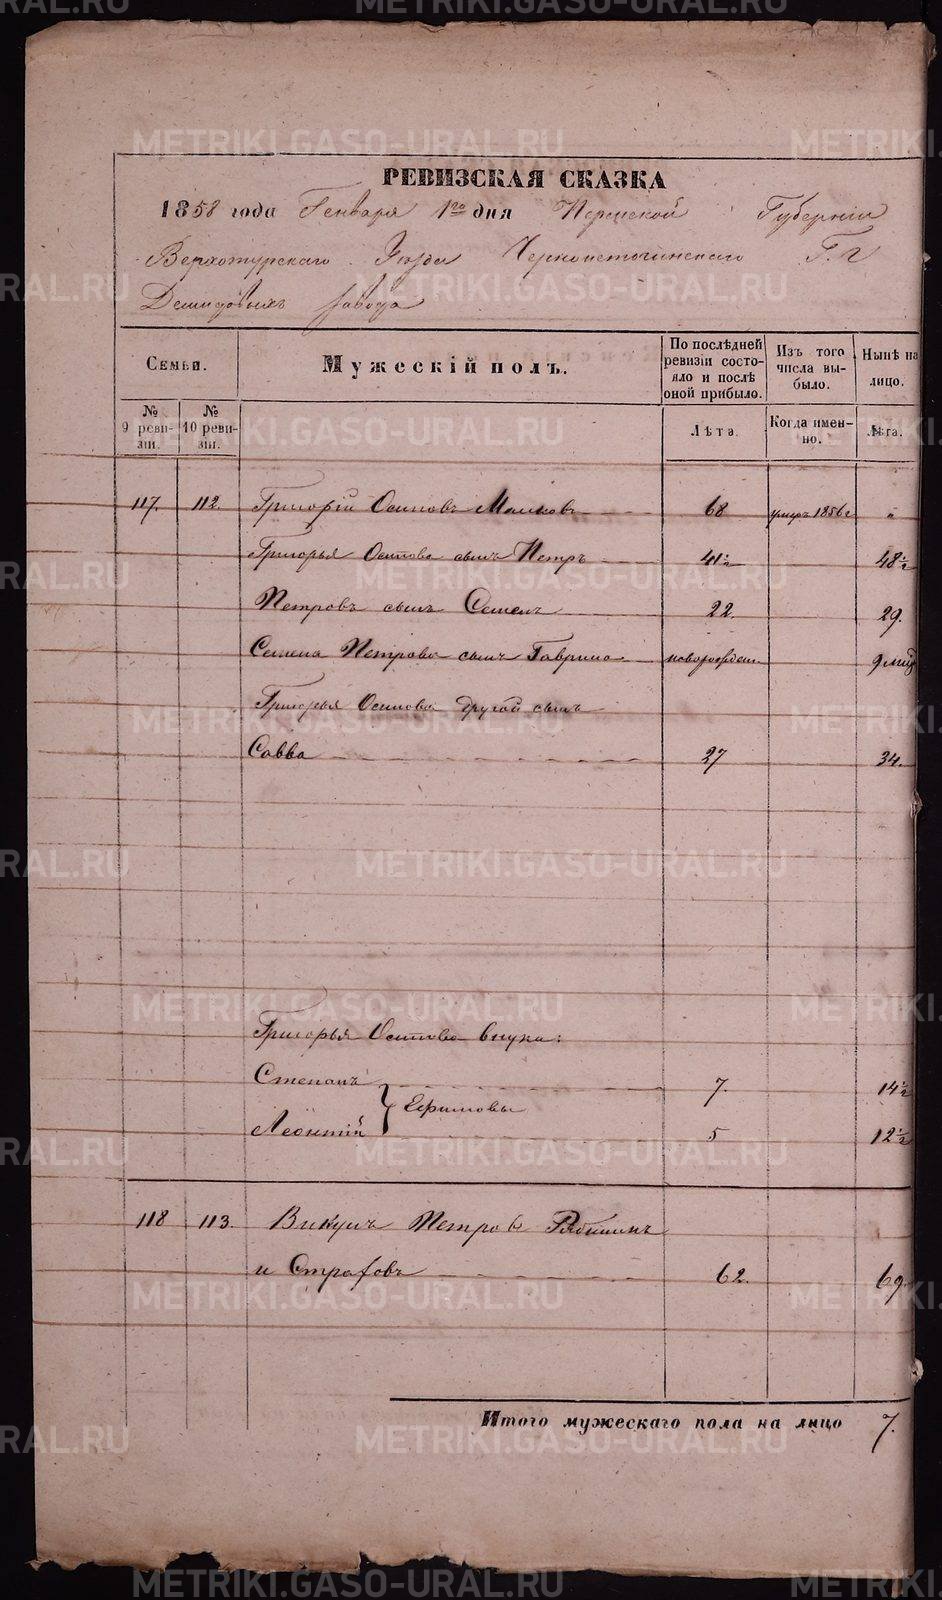 РЕВИЗСКАЯ СКАЗКА
1858 года Генваря 1го дня Пермской Губернии
Верхотурскаго Уезда Черноисточинскаго Г.г
Демидовыхъ завода
Семьи.
Мужескій полъ.
По послѣдней ревизіи состояло и послѣ оной прибыло.
Изъ того числа выбыло.
Нынѣ на лицо.
№ 9 ревизіи.
№ 10 ревизіи.
Лѣта.
Когда именно.
Лѣта.
117. 112. Григорій Осиповъ 68 умеръ 1856 г "
Григорья Осипова сынъ Петръ 41½ 48½
Петровъ сынъ Семенъ 22. 29.
Семена Петрова сынъ Гаврило новорожден. 9 мис
Григорья Осипова другой сынъ
Савва 27 34.
Григорья Осипова внуки:
Степанъ 7. 14½
Ефимовы
Леонтій 5 12½
118 113. Викулъ Петровъ
и Страховъ 62. 69.
Итого мужескаго пола на лицо 7.
METRIKI.GASO-URAL.RU